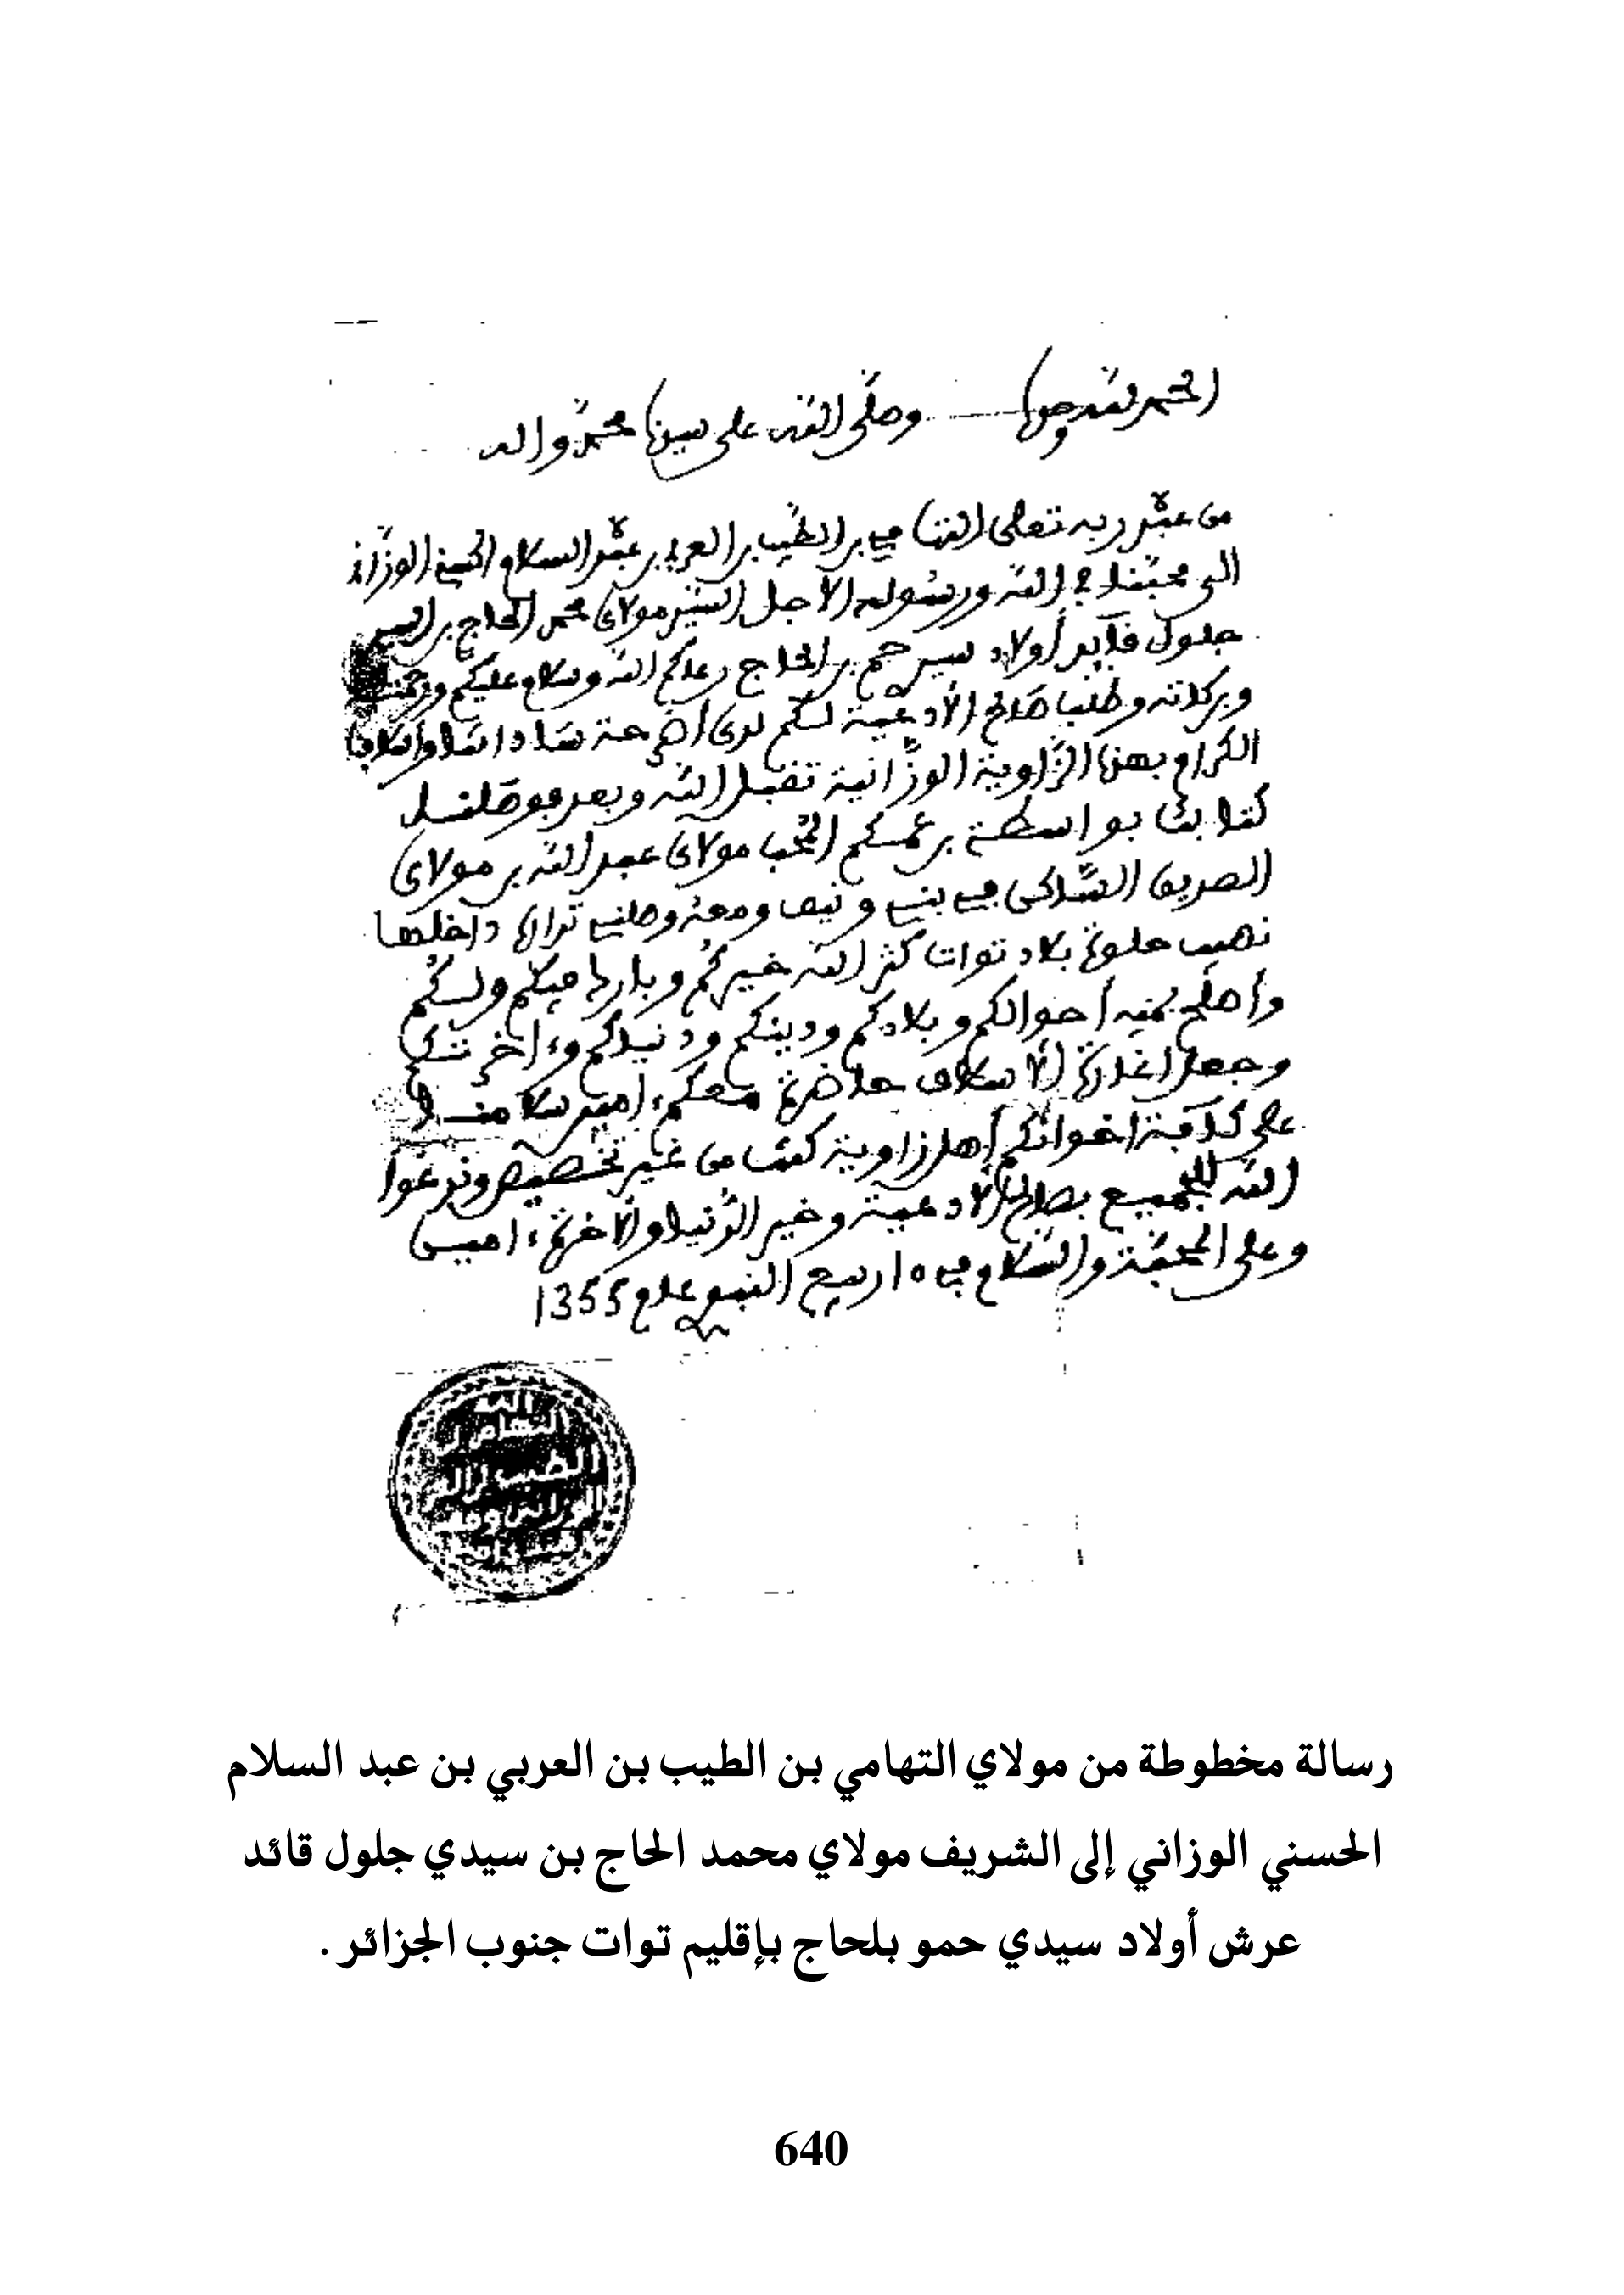 الحمد لله وحده وصلى الله على سيدنا محمد واله
من عبد ربه تعلى التهامي بن الطيب بن العربي بن عبد السلام الحسني الوزاني
الى محبنا في الله ورسوله الأجل السيد مولاي محمد الحاج بن السيد
جلول فايد أولاد سيد حم بن الحاج رعاكم الله وسلام عليكم ورحمت
وبركاته وطلب صالح الأدعية لكم لدى أضرحة ساداتنا وأسلافنا
الكرام بهذا الزاوية الوزانية تقبل الله وبعد فوصلنا
كتابك بواسطة بن عمكم المحب مولاي عبد الله بن مولاي
الصديق الساكن في بني ونيف ومعه وصلني داخلها
نصيب حلوة بلاد توات كثر الله خيركم وبارك فيكم ولكم
وأصلح بمنه أحوالكم وبلادكم ودينكم ودنياكم وءاخرتكم
وجعل اغارة الأسلاف حاضرة معكم ءامين سلامنا
على كافة اخوانكم أهل زاوية كنت من غير تخصيص وندعوا
الله للجميع بصالح الأدعية وخير الدنيا والآخرة ءامين
وعلى المحبة والسلام في ربيع النبوي عام 1355
الطيب
رسالة مخطوطة من مولاي التهامي بن الطيب بن العربي بن عبد السلام
الحسني الوزاني إلى الشريف مولاي محمد الحاج بن سيدي جلول قائد
عرش أولاد سيدي حمو بلحاج بإقليم توات جنوب الجزائر .
640